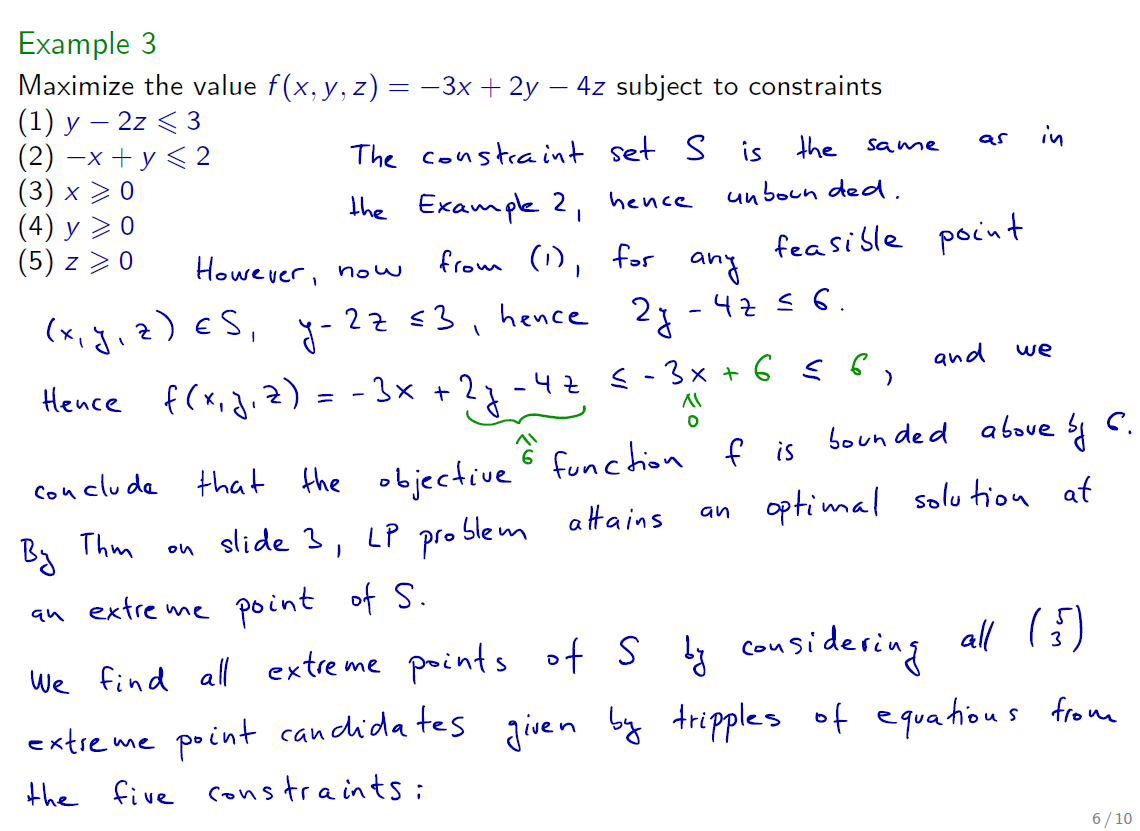 Example 3
Maximize the value f(x, y, z) = −3x + 2y − 4z subject to constraints
(1) y − 2z ⩽ 3
(2) −x + y ⩽ 2
(3) x ⩾ 0
(4) y ⩾ 0
(5) z ⩾ 0
The constraint set S is the same as in
the Example 2, hence unbounded.
However, now from (1), for any feasible point
(x, y, z) ∈ S, y - 2z ≤ 3, hence 2y - 4z ≤ 6.
Hence f(x, y, z) = -3x + 2y - 4z ≤ -3x + 6 ≤ 6, and we
≤ 6
≤ 0
conclude that the objective function f is bounded above by 6.
By Thm on slide 3, LP problem attains an optimal solution at
an extreme point of S.
We find all extreme points of S by considering all (5 3)
extreme point candidates given by tripples of equations from
the five constraints:
6 / 10